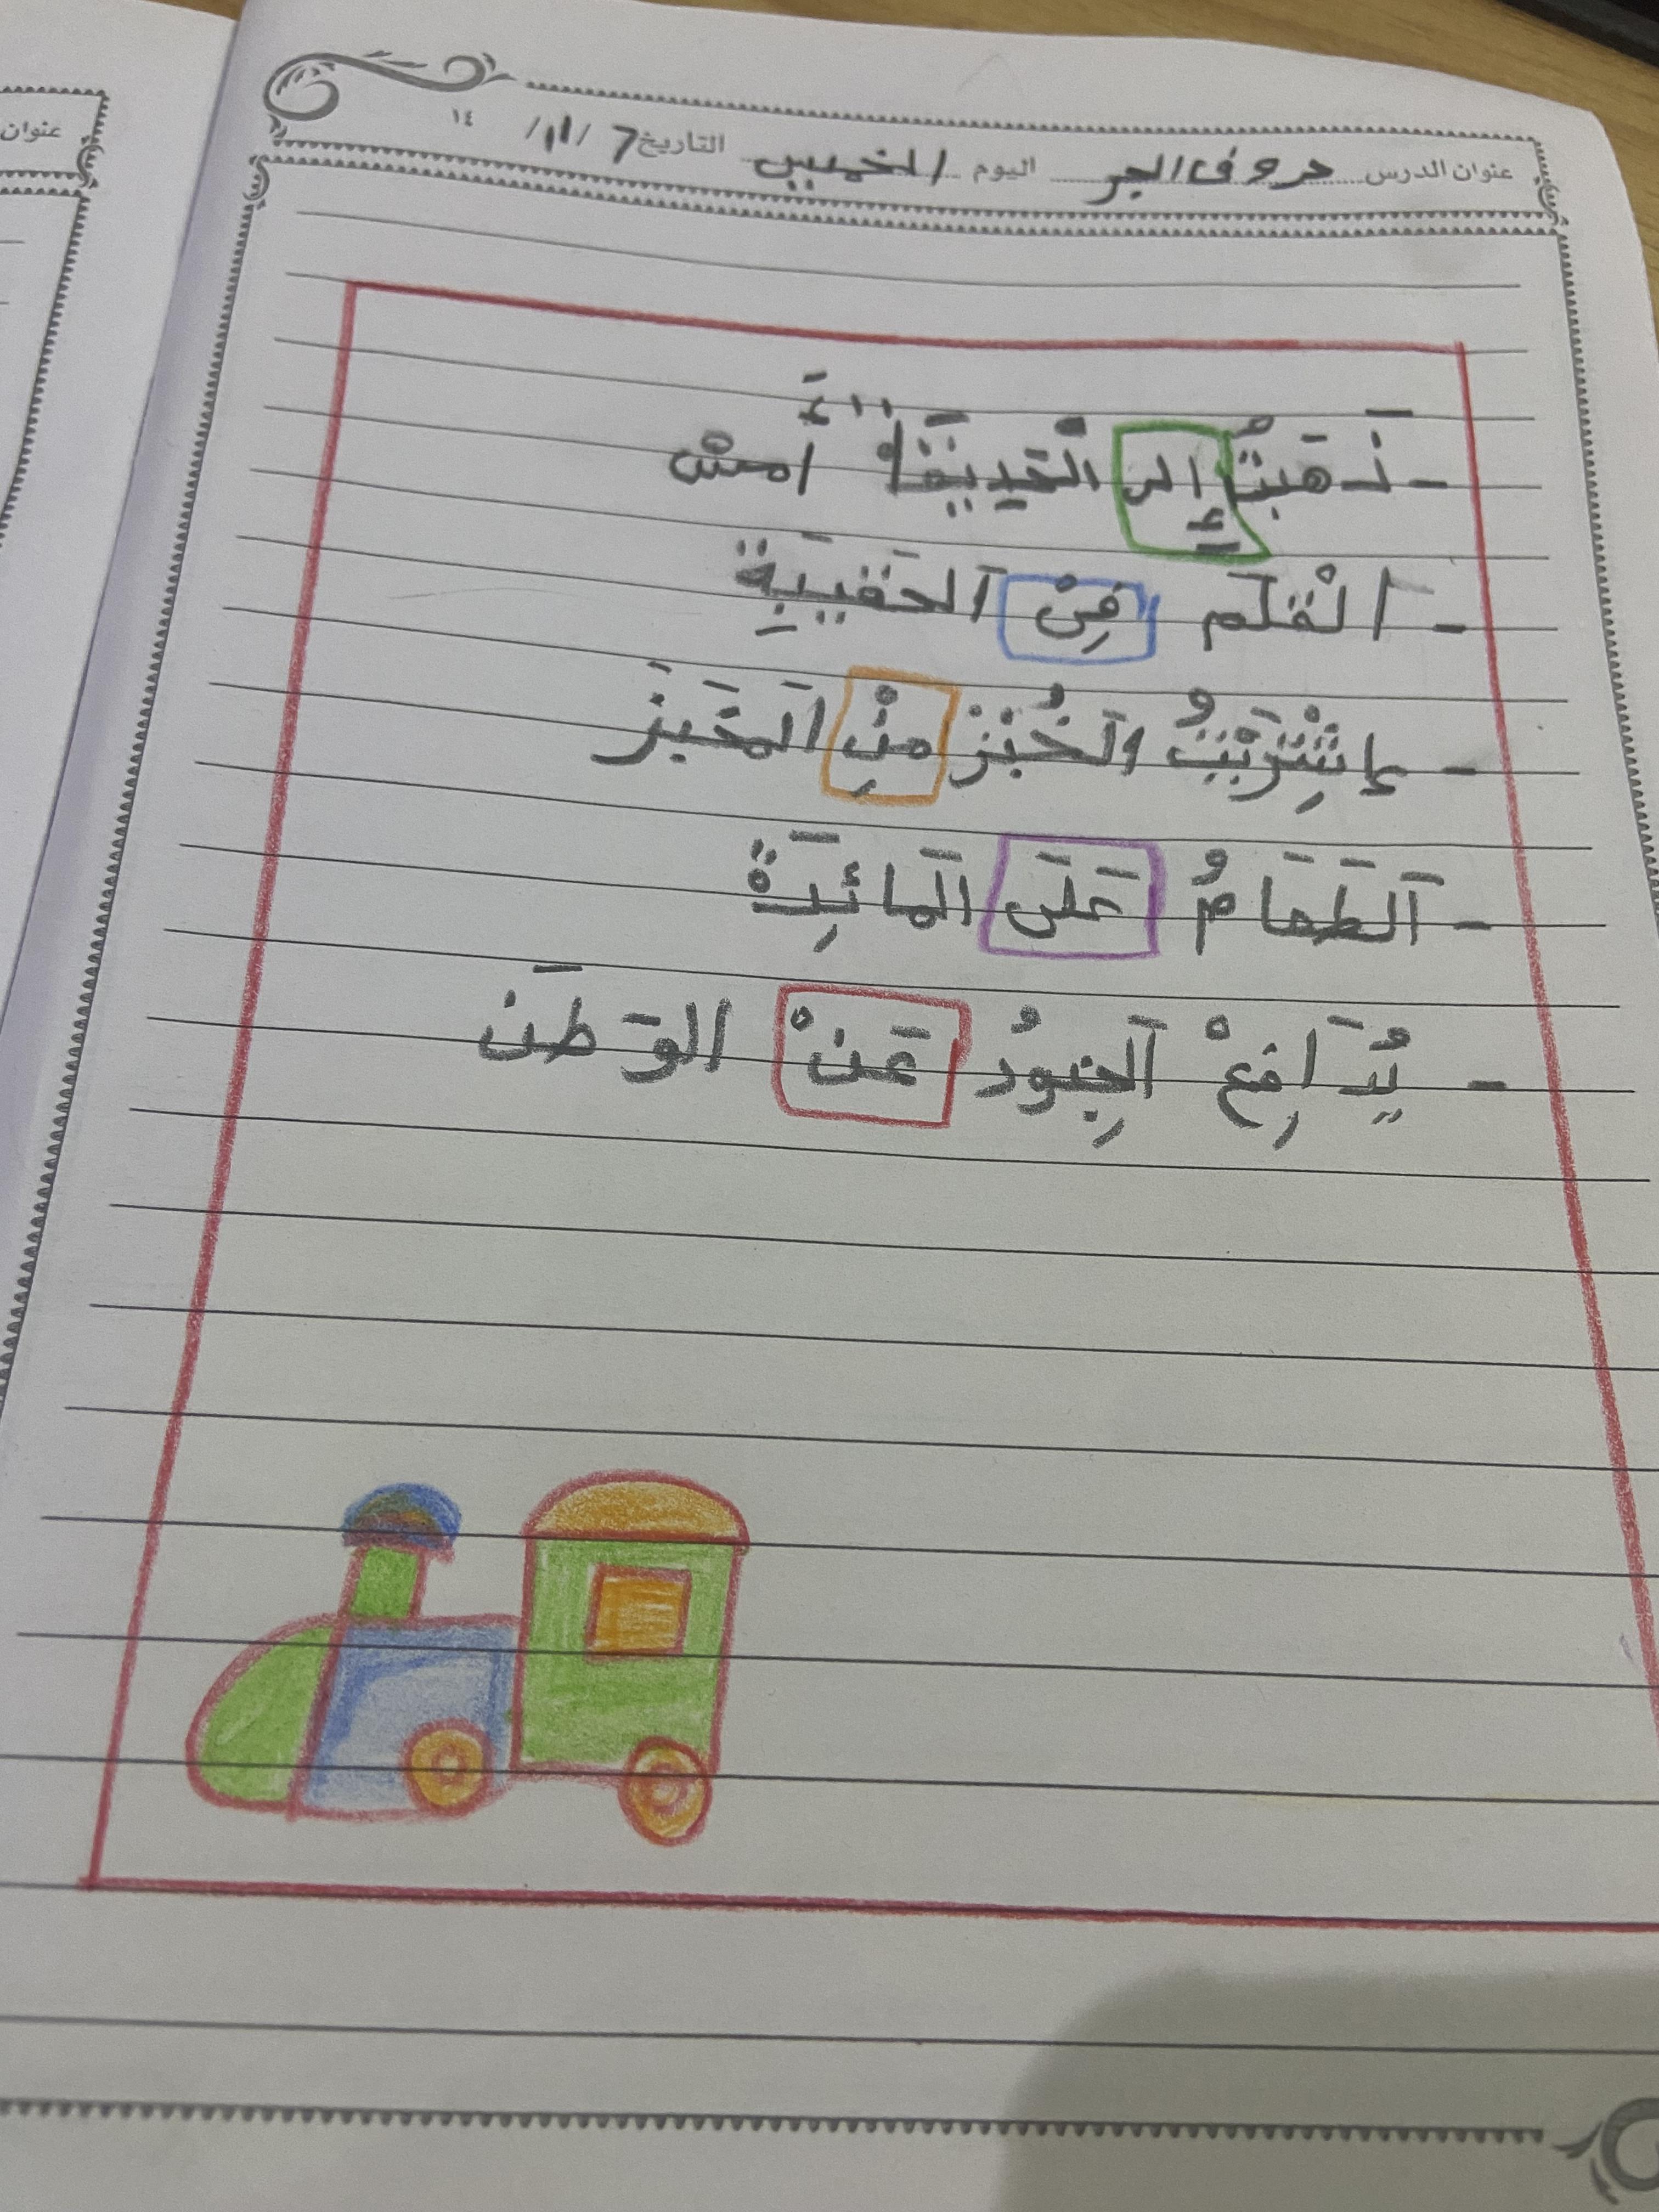 عنوان الدرس حروف الجر اليوم الخميس التاريخ 7 / 11 / ١٤
عنوان
- ذَهَبْتُ إِلى الْحَدِيقَة أَمسْ
- الْقلَم فِيْ الَحَقيبَةِ
- إشْتِرَيْتُ الَخُبْزَ مِنْ الَمَخبَز
- اَلطَعَامُ عَلَى الَمائِدَة
- يُدَافِعْ الَجِنودُ عَنْ الوَطَن